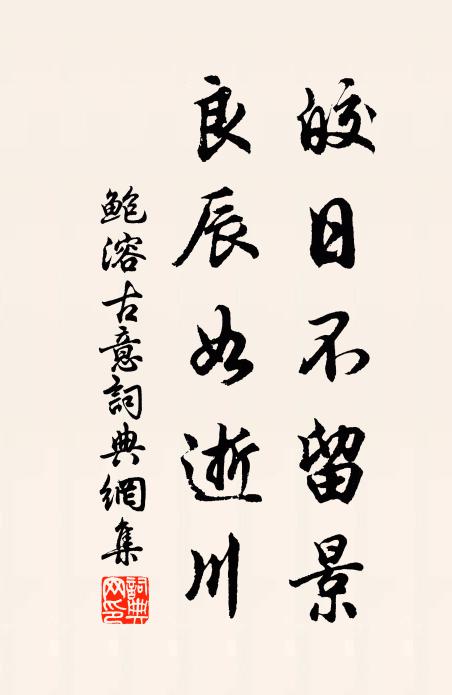 皎日不留景
良辰如逝川
鲍溶古意詞典網集
詞典網印